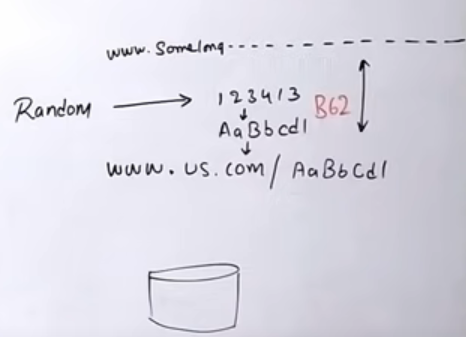 www.Somelong------------
Random → 123413 B62
AaBbcd1
www.us.com/AaBbCd1